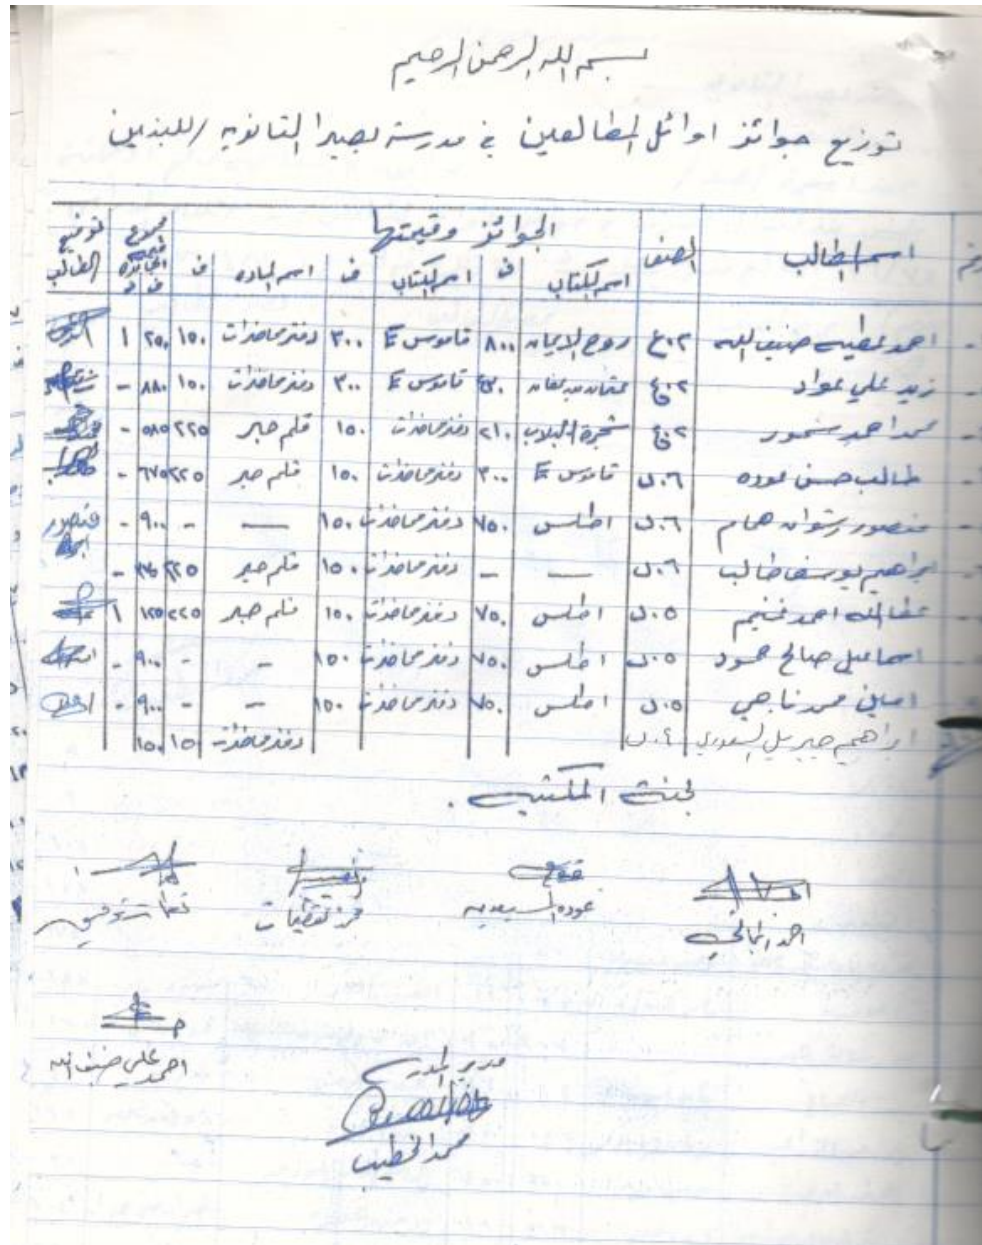 بسم الله الرحمن الرحيم
توزيع جوائز اوائل المطالعين في مدرسة بصيرا الثانوية / للبنين
رقم اسم الطالب الصف الجوائز وقيمتها مجموع قيمة الجائزة توقيع الطالب
اسم الكتاب ف اسم الكتاب ف اسم المادة ف ف د
احمد عطيه ضيف الله ٢.ع روح الايمان ٨٠٠ قاموس E ٣٠٠ دفتر محاضرات ١٥٠ ٢٥٠ ١
زيد علي عواد ٢.ع عثمان بن عفان ٤٣٠ قاموس E ٣٠٠ دفتر محاضرات ١٥٠ ٨٨٠ -
محمد احمد ٢.ع شجرة اللبلاب ٢١٠ دفتر محاضرات ١٥٠ قلم حبر ٢٢٥ ٥٨٥ -
طالب حسن عوده ٦.ل قاموس E ٣٠٠ دفتر محاضرات ١٥٠ قلم حبر ٢٢٥ ٦٧٥ -
منصور رشوان همام ٦.ل اطلس ٧٥٠ دفتر محاضرات ١٥٠ — - ٩٠٠ - منصور
ابراهيم يوسف طالب ٦.ل — - دفتر محاضرات ١٥٠ قلم حبر ٢٢٥ -
عطاالله احمد غنيم ٥.ل اطلس ٧٥٠ دفتر محاضرات ١٥٠ قلم حبر ٢٢٥ ١٢٥ ١
اسماعيل صالح حمود ٥.ل اطلس ٧٥٠ دفتر محاضرات ١٥٠ - - ٩٠٠ -
محمد ناجي ٥.ل اطلس ٧٥٠ دفتر محاضرات ١٥٠ - - ٩٠٠ -
ابراهيم جبريل السعودي ٤.ل دفتر محاضرات ١٥٠ ١٥٠
لجنة المكتبة .
احمد عوده محمد توفيق
احمد علي ضيف الله
مدير المدرسة
محمد الخطيب